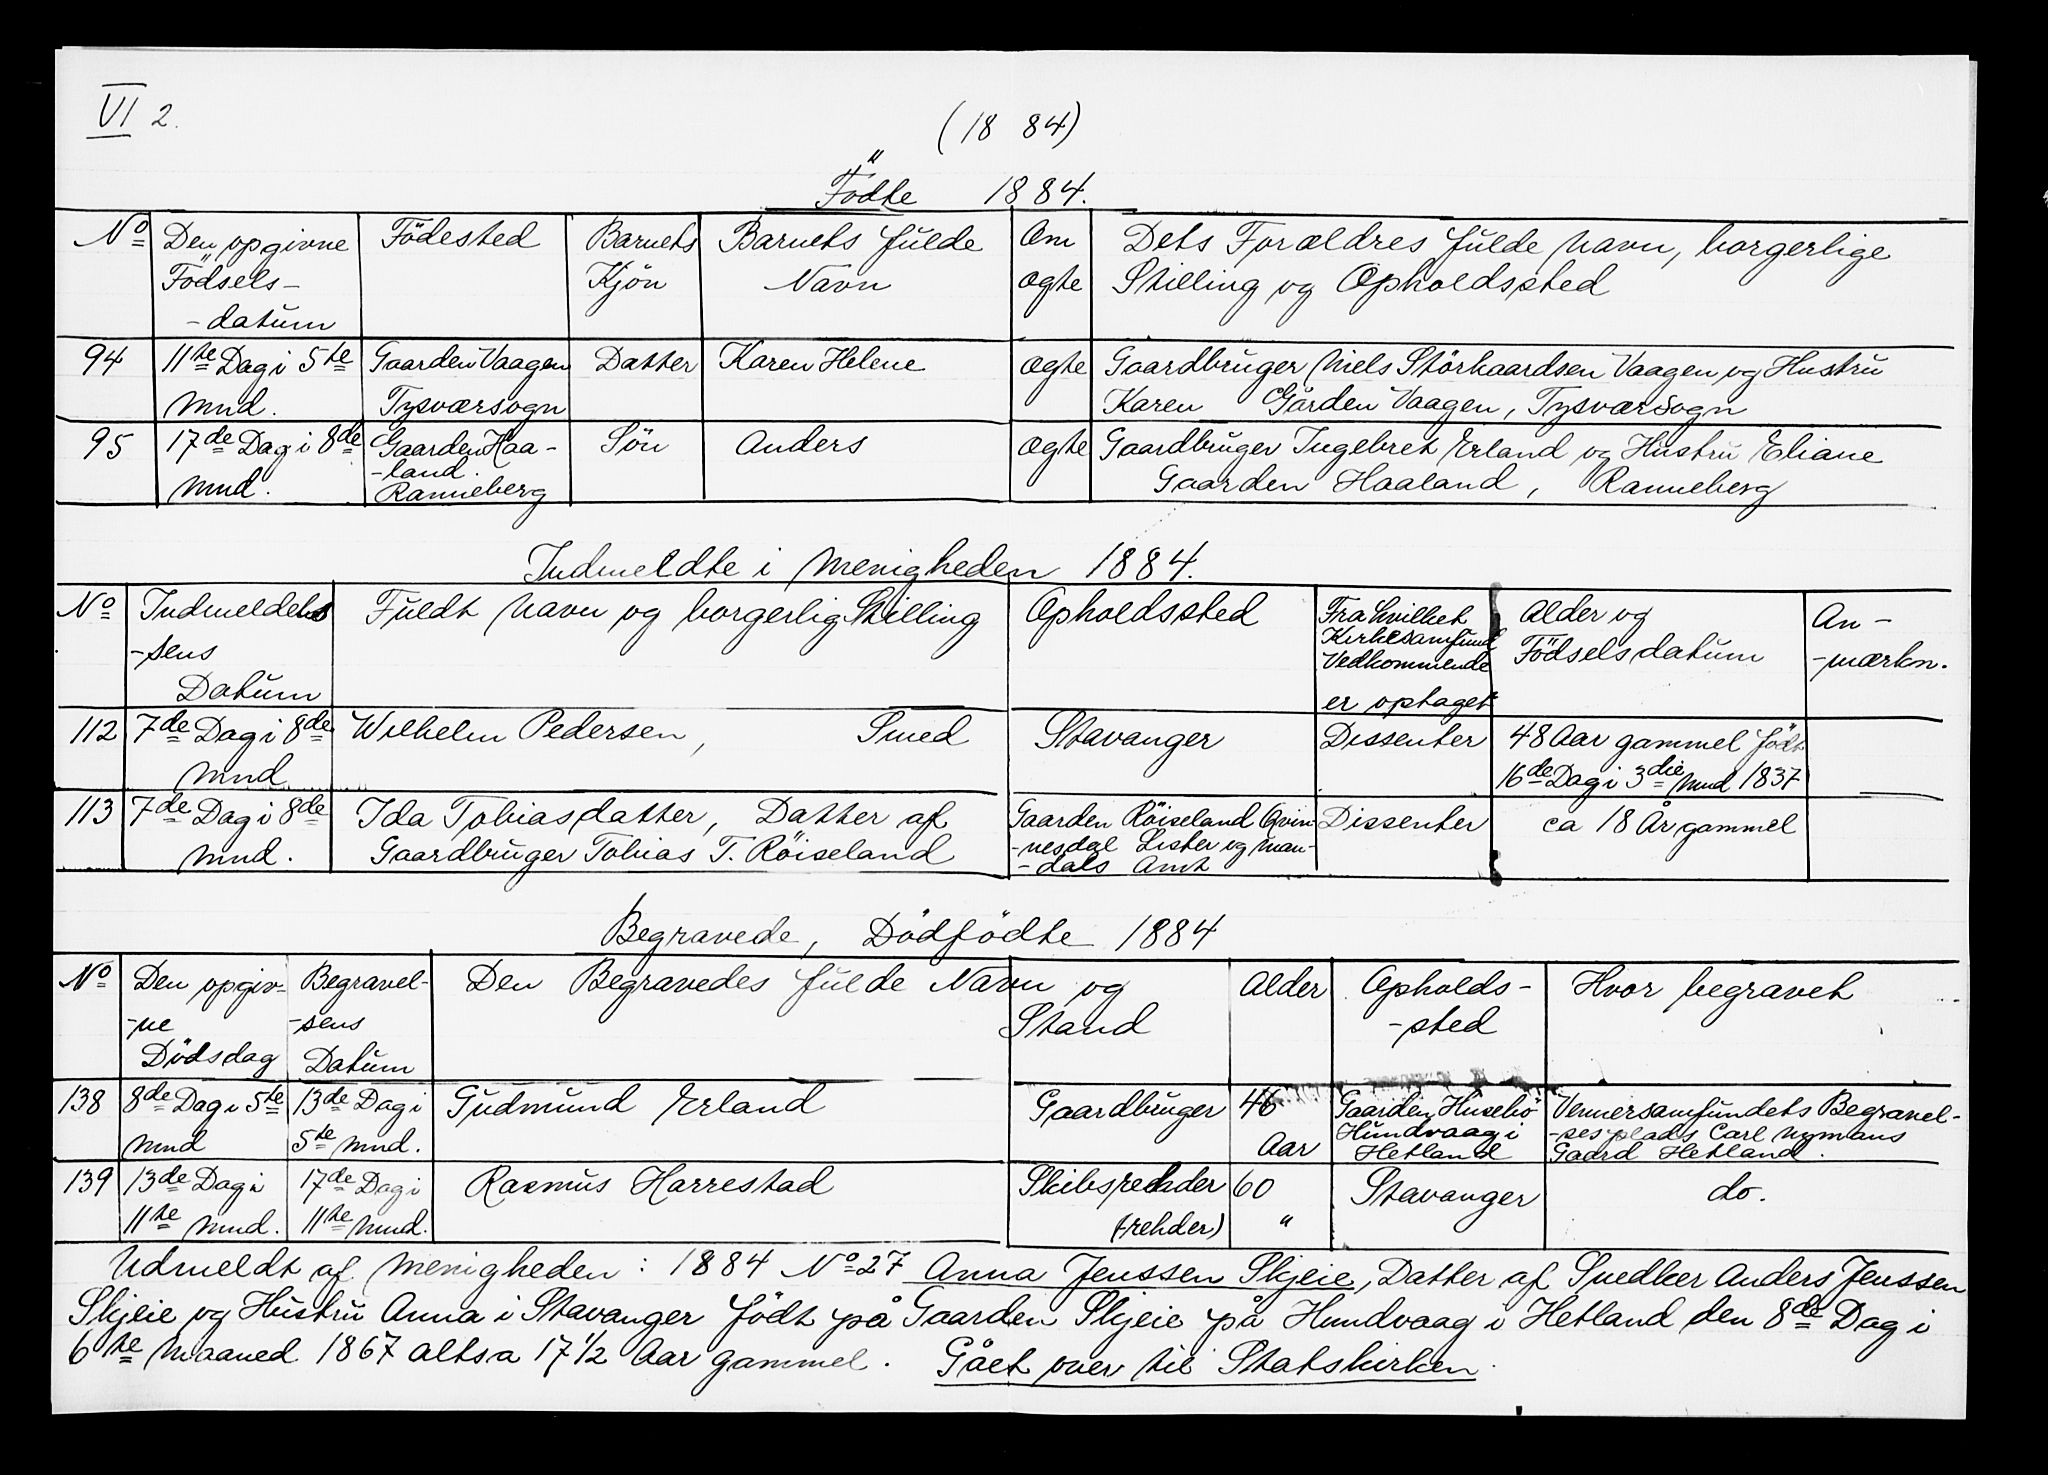 VI 2.
(18 84)
Födte 1884.
No Den opgivne Födsels- -datum Födested Barnets Kjön Barnets fulde Navn Om ægte Dets Forældres fulde Navn, borgerlige Stilling og Opholdssted
94 11te Dag i 5te Mnd. Gaarden Vaagen Tysværsogn Datter Karen Helene ægte Gaardbruger Niels Störkaardsen Vaagen og Hustru
Karen Gården Vaagen, Tysværsogn
95 17de Dag i 8de Mnd. Gaarden Haa- -land. Ranneberg Sön Anders ægte Gaardbruger Ingebret Erland og Hustru Eliane
Gaarden Haaland, Ranneberg
Indmeldte i Menigheden 1884.
No Indmeldel -sens Datum Fuldt Navn og borgerlig Stilling Opholdssted Fra hvilket Kirkesamfund Vedkommende er optaget Alder og Födselsdatum An- -mærkn.
112 7de Dag i 8de Mnd Wilhelm Pedersen, Smed Stavanger Dissenter 48 Aar gammel födt
16de Dag i 3die Mnd 1837
113 7de Dag i 8de Mnd. Ida Tobiasdatter, Datter af
Gaardbruger Tobias T. Röiseland Gaarden Röiseland Qvin- -nesdal Lister og Man- -dals Amt Dissenter ca 18 År gammel
Begravede, Dödfödte 1884
No Den opgiv- -ne Dödsdag Begravel- -sens Datum Den Begravedes fulde Navn og Stand Alder Opholds- -sted Hvor begravet
138 8de Dag i 5te Mnd 13de Dag i 5te Mnd. Gudmund Erland Gaardbruger 46 Aar Gaarden Husebö Hundvaag i Hetland Vennersamfundets Begravel- -sesplads Carl Nymans Gaard Hetland.
139 13de Dag i 11te Mnd. 17de Dag i 11te Mnd. Rasmus Harrestad Skibsrehder (rehder) 60 " Stavanger do.
Udmeldt af Menigheden : 1884 No 27 Anna Jenssen Skjeie, Datter af Snedker Anders Jenssen
Skjeie og Hustru Anna i Stavanger födt på Gaarden Skjeie på Hundvaag i Hetland den 8de Dag i
6te Maaned 1867 altsa 17 1/2 Aar gammel. Gået over til Statskirken.